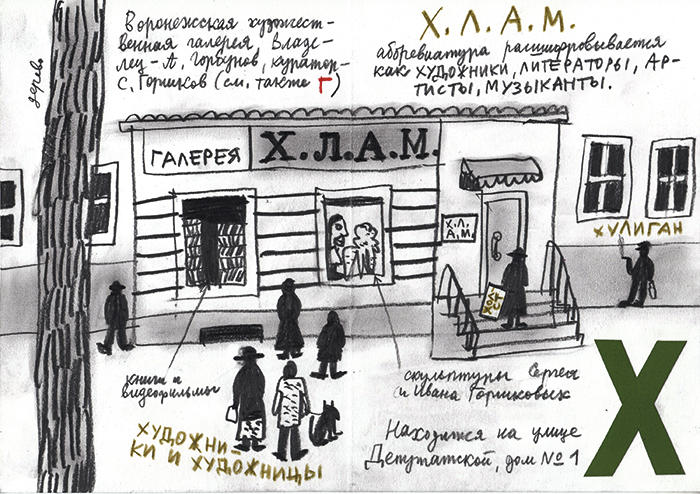 Воронежсская художест-
венная галерея Владе-
лец - А. Горбунов, куратор-
С. Горшков (см. также Г)
Х.Л.А.М.
аббревиатура расшифровывается
как ХУДОЖНИКИ, ЛИТЕРАТОРЫ, АР-
ТИСТЫ, МУЗЫКАНТЫ.
дерево
ГАЛЕРЕЯ
Х.Л.А.М.
Х.Л.
А.М.
ХУЛИГАН
книги и
видеофильмы
скульптуры Сергея
и Ивана Горшковых
ХУДОЖНИ-
КИ И ХУДОЖНИЦЫ
Находится на улице
Депутатской, дом № 1
Х